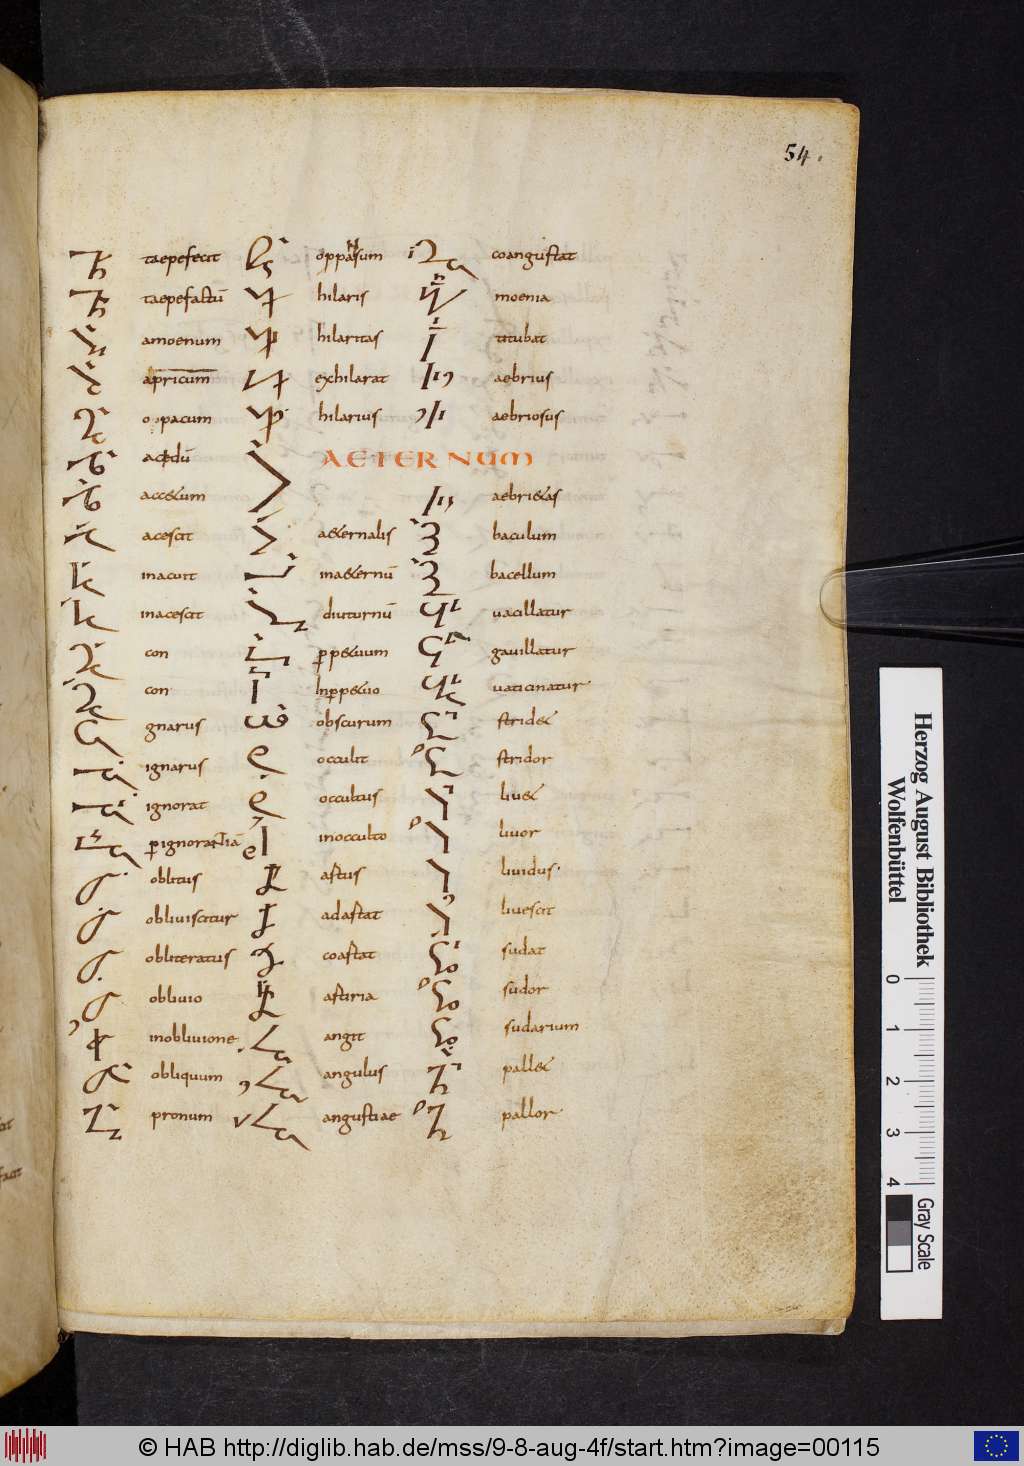 54.
taepefecit
taepefactū
amoenum
apricum
opacum
acedū
accetum
acescit
inacuit
inacescit
con
con
gnarus
ignarus
ignorat
ignorantiā
oblitus
obliviscitur
obliteratus
oblivio
inoblivione
obliquum
pronum
oppansum
hilaris
hilaritas
exhilarat
hilarius
AETERNUM
aeternalis
inaeternū
diuturnū
obscurum
occulit
occultus
inocculto
astus
adastat
coastat
asturia
angit
angulus
angustiae
coangustat
moenia
titubat
aebrius
aebriosus
aebrietas
baculum
bacellum
vacillatur
gavillatur
vaticinatur
stridet
stridor
livet
livor
lividus
livescit
sudat
sudor
sudarium
pallet
pallor
Herzog August Bibliothek
Wolfenbüttel
0 1 2 3 4
Gray Scale
© HAB http://diglib.hab.de/mss/9-8-aug-4f/start.htm?image=00115